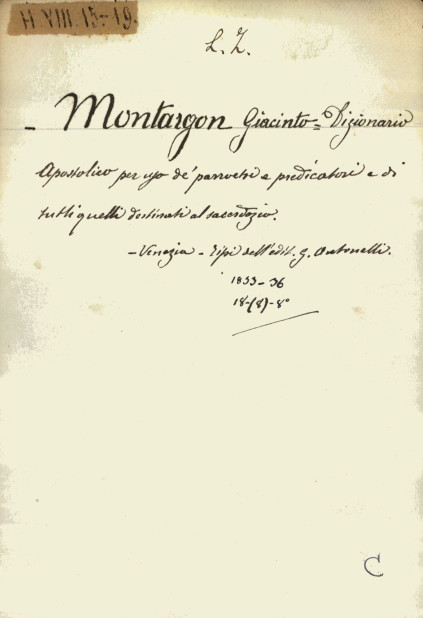 H VIII. 15-19.
L. Z.
- Montargon Giacinto = Dizionario
Apostolico per uso de' parrochi e predicatori e di
tutti quelli destinati al sacerdozio.
- Venezia - Tipi dell'edit. G. Antonelli.
1833-36
18-(8)-8°
C